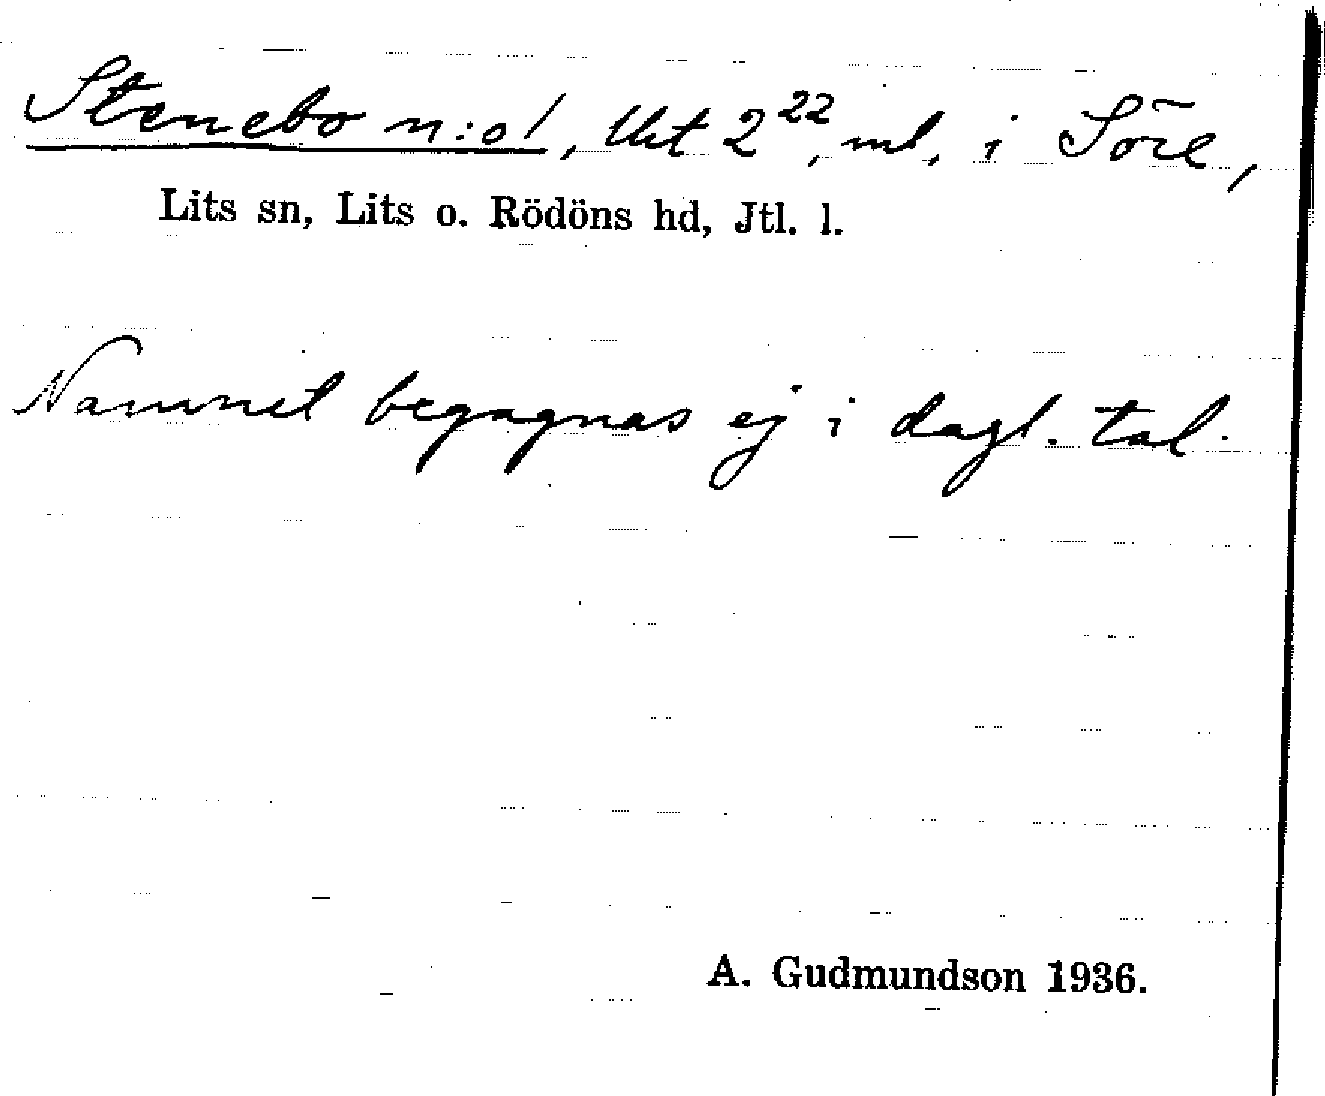 Stenebo n:o 1, litt 2²², ml, i Söre,
Lits sn, Lits o. Rödöns hd, Jtl. l.
Namnet begagnas ej i dagl. tal.
A. Gudmundson 1936.